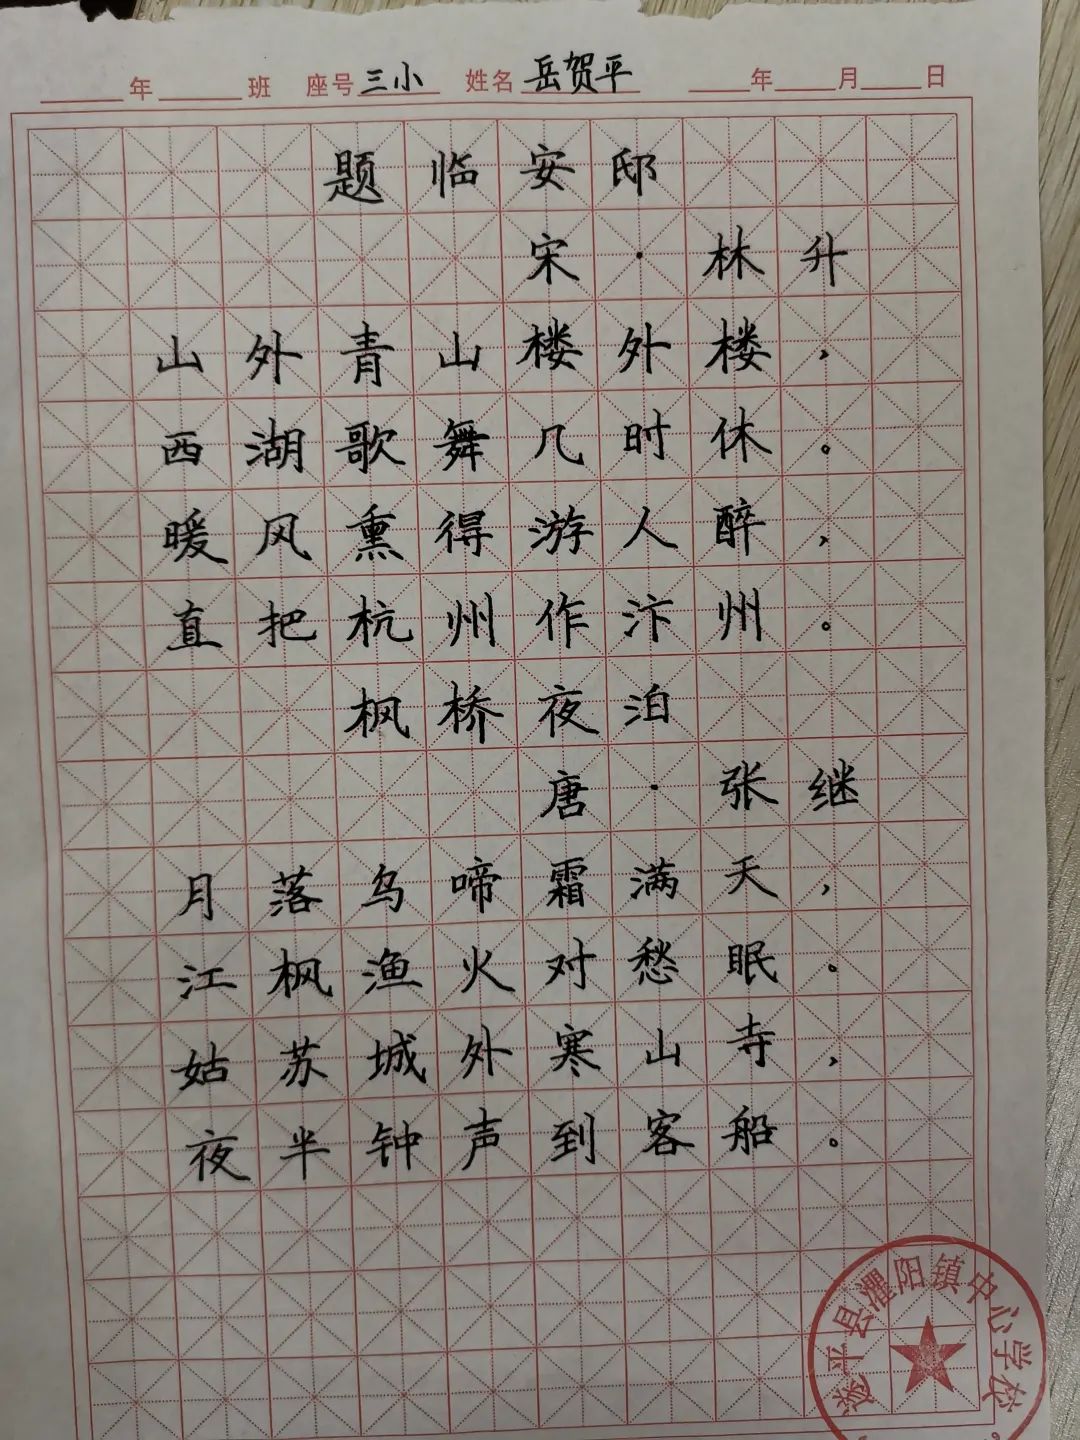 年 班 座号 三小 姓名 岳贺平 年 月 日
题临安邸
宋·林升
山外青山楼外楼，
西湖歌舞几时休。
暖风熏得游人醉，
直把杭州作汴州。
枫桥夜泊
唐·张继
月落乌啼霜满天，
江枫渔火对愁眠。
姑苏城外寒山寺，
夜半钟声到客船。
遂平县灈阳镇中心学校